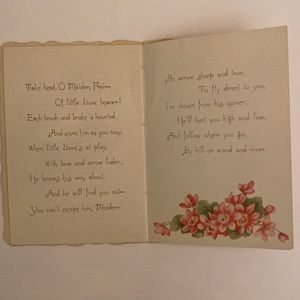 Take heed, O Maiden Fair—
Of little Love beware!
Each brush and brake is haunted,
And scorn him as you may,
When little Love's at play,
With bow and arrow laden;
He knows his way about,
And he will find you out—
You can't escape him, Maiden.
An arrow sharp and true,
To fly direct to you,
He's chosen from his quiver;
He'll hunt you high and low,
And follow where you go,
By hill or wood and river.